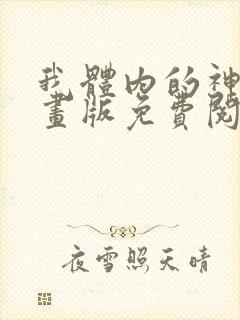 我體內的神
畫版免費閱
夜雪照天晴